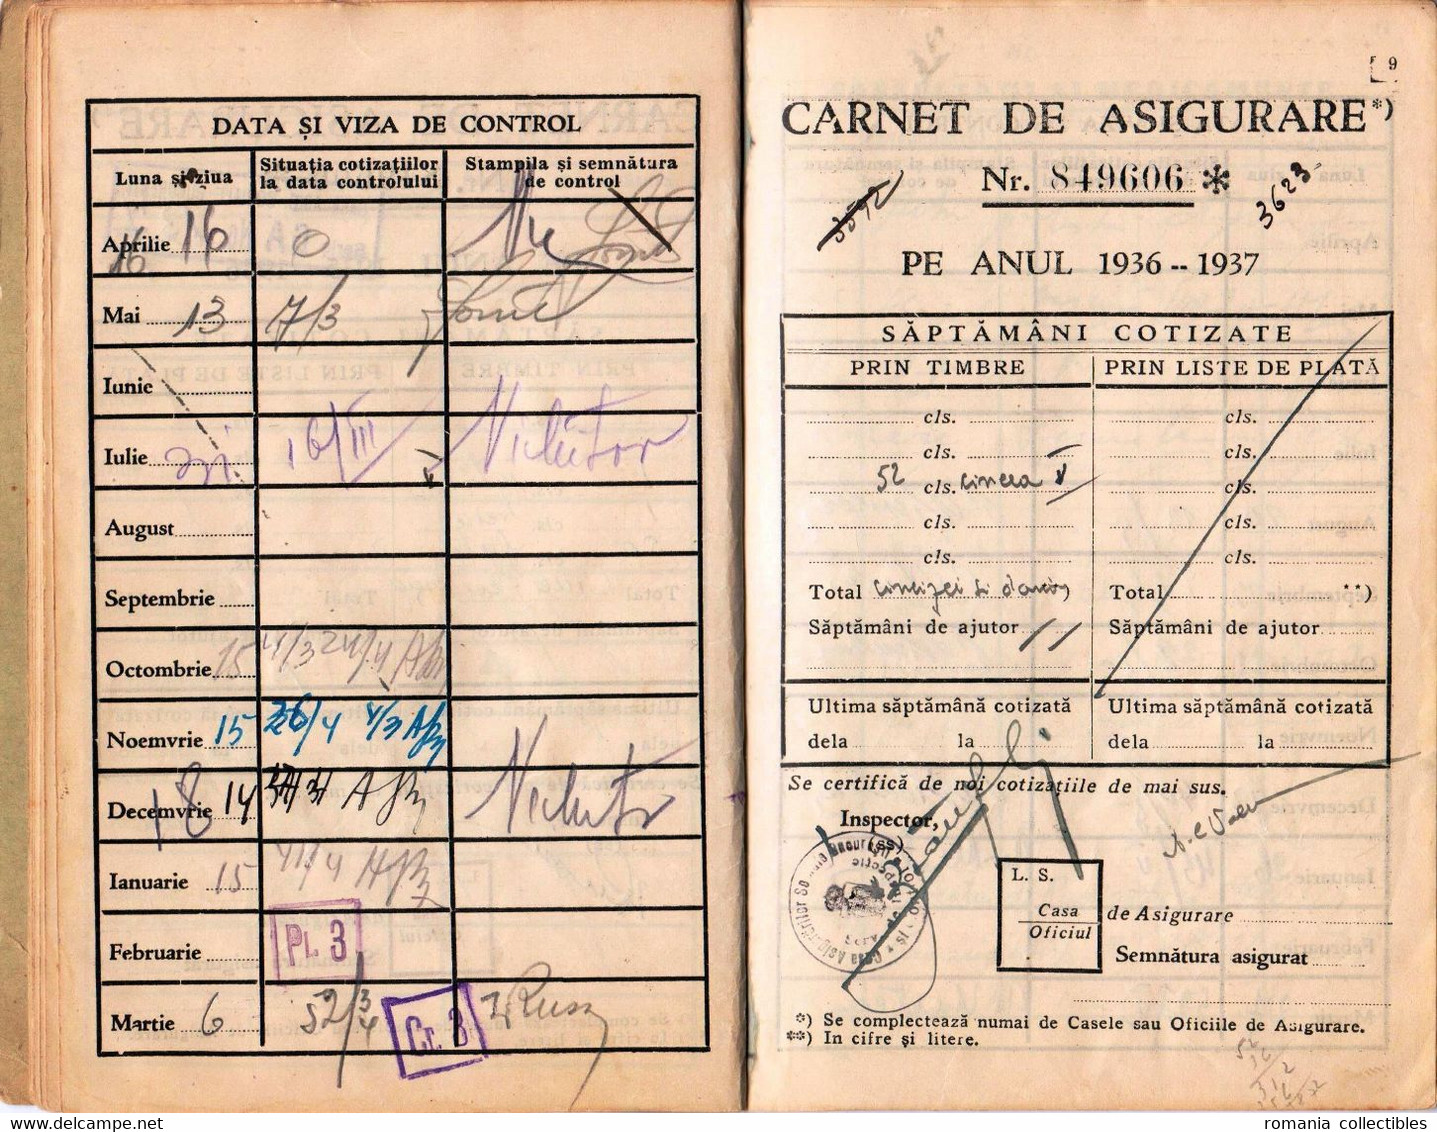 DATA ȘI VIZA DE CONTROL
Luna și ziua
Situația cotizațiilor
la data controlului
Stampila și semnătura
de control
Aprilie 16 0
16
Mai 13 7/3
Iunie
Iulie 16/III
August
Septembrie
Octombrie 15 4/3 24/4
Noemvrie 15 26/4 4/3
Decemvrie 14
18
Ianuarie 15 41/4
Februarie
Pl. 3
Martie 6 52 3/4
Cr. 3
9
CARNET DE ASIGURARE*)
Nr. 849606 *
3623
PE ANUL 1936 -- 1937
SĂPTĂMÂNI COTIZATE
PRIN TIMBRE
PRIN LISTE DE PLATĂ
cls. cls.
cls. cls.
52 cls. cincea cls.
cls. cls.
cls. cls.
Total Total **)
Săptămâni de ajutor Săptămâni de ajutor
Ultima săptămână cotizată Ultima săptămână cotizată
dela la dela la
Se certifică de noi cotizațiile de mai sus.
Inspector,
(ss)
L. S.
Casa
Oficiul
de Asigurare
Semnătura asigurat
*) Se complectează numai de Casele sau Oficiile de Asigurare.
**) In cifre și litere.
romania collectibles